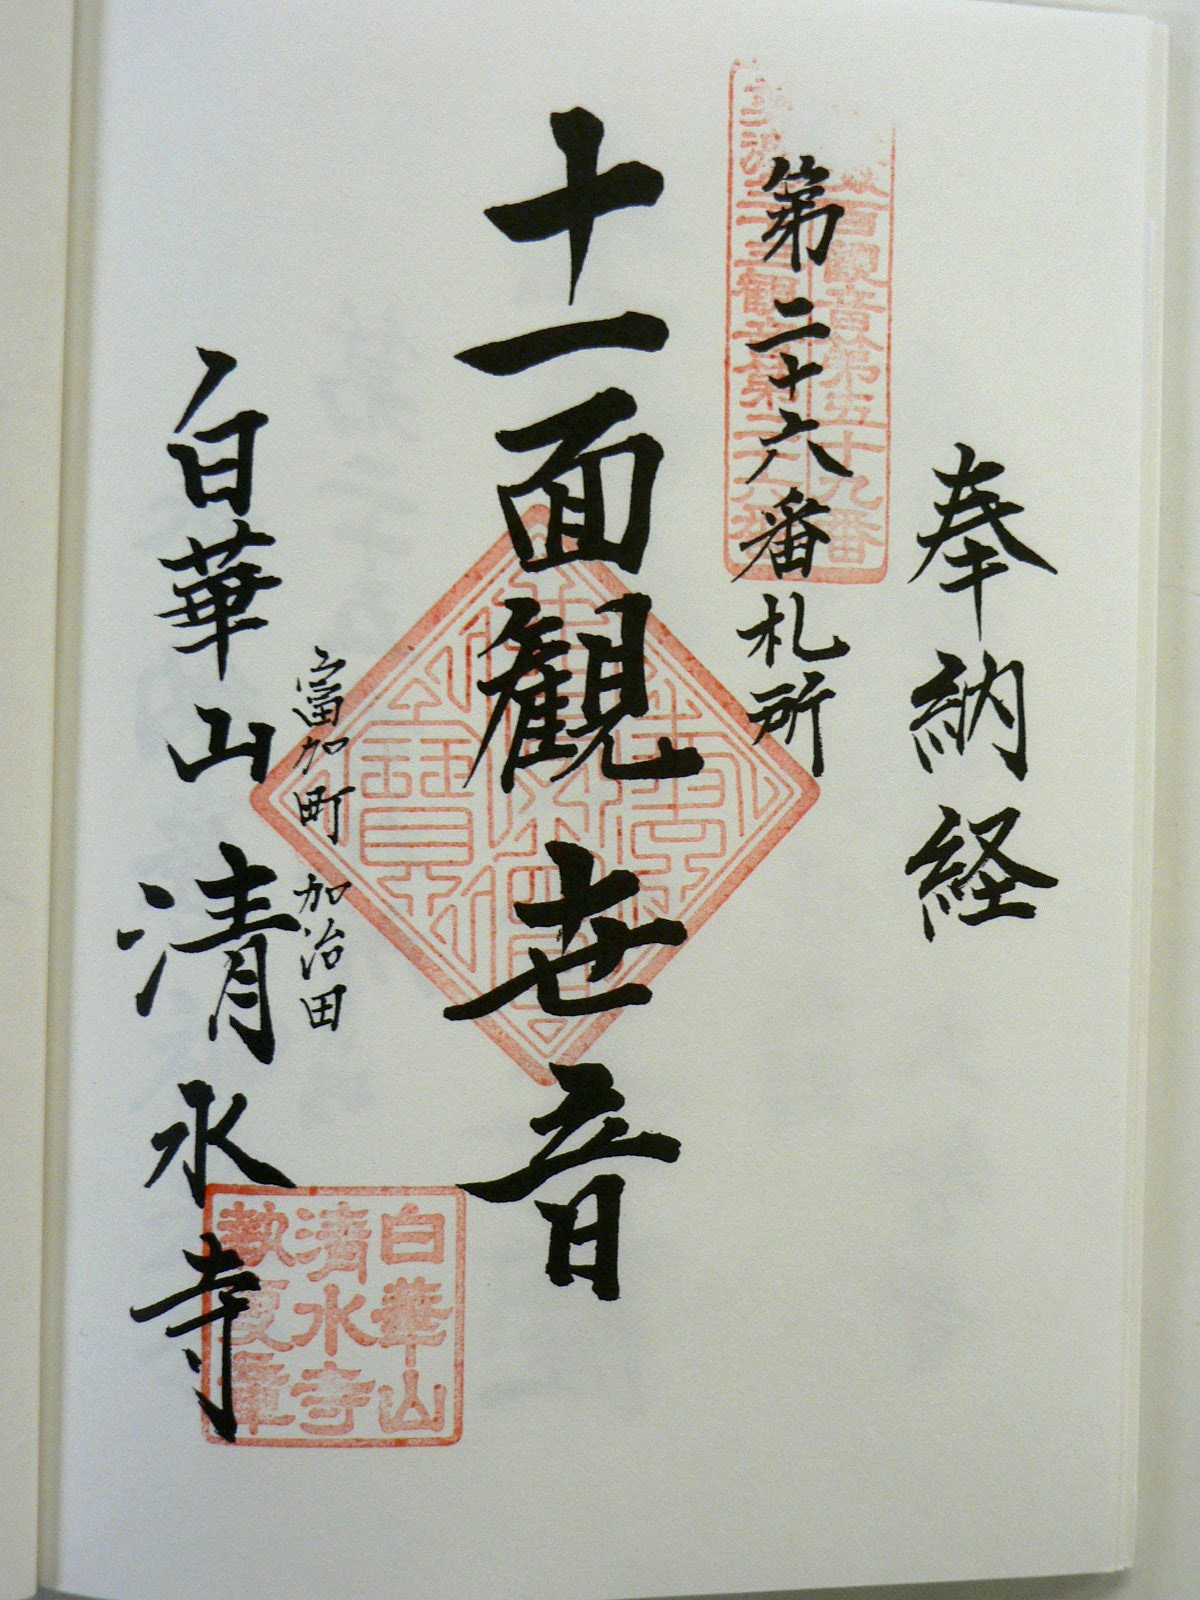 奉納経
百観音第五十九番
三十三観音第二十六番
第二十六番札所
十一面観世音
富加町 加治田
白華山 清水寺
白華山
清水寺
執事章